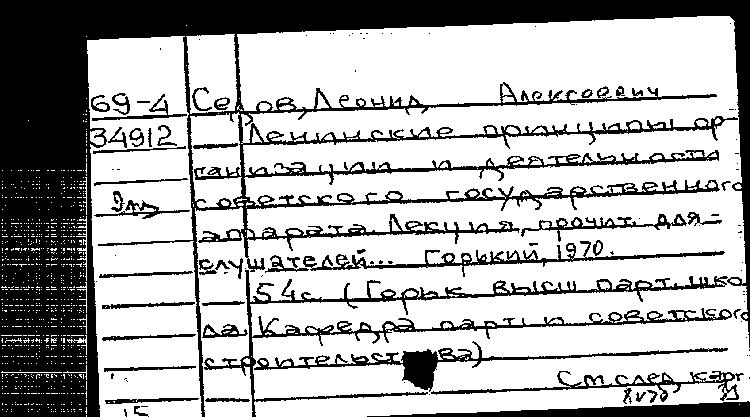 69-4 Седов, Леонид Алексеевич
34912 Ленинские принципы ор-
ганизации и деятельности
советского государственного
аппарата. Лекция, прочит. для
слушателей... Горький, 1970.
54с. (Горьк. высш. парт. шко-
ла. Кафедра парт. и советского
строительства)
См. след. карт.
15